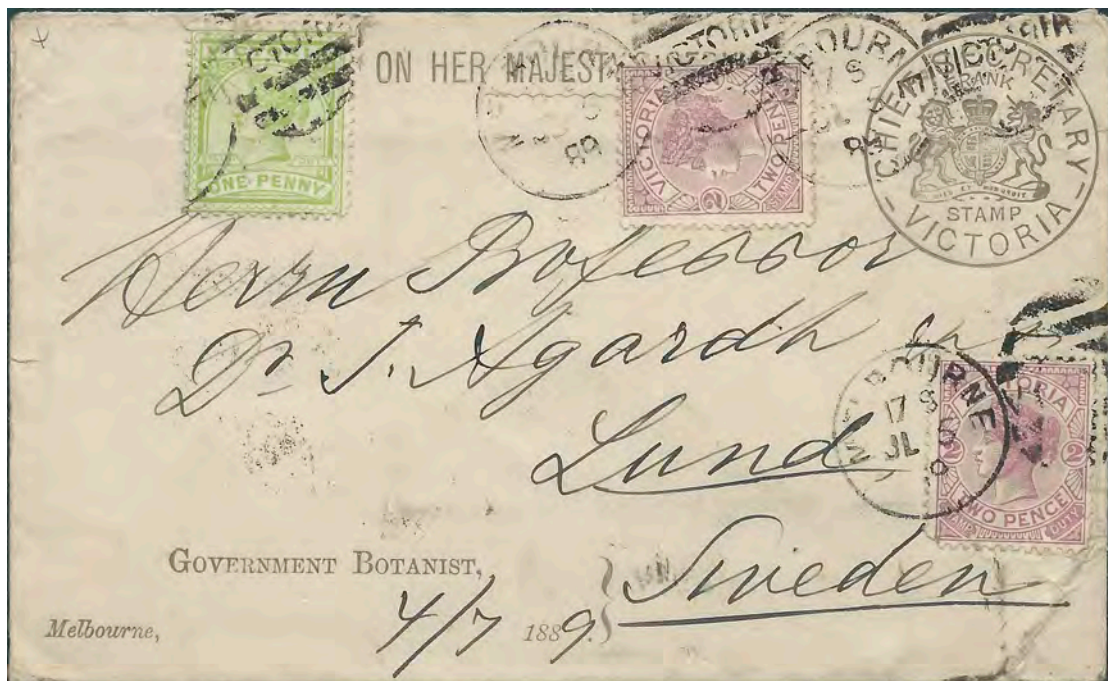 ON HER MAJESTY
VICTORIA
ONE PENNY
VICTORIA
TWO PENCE
STAMP
2
MELBOURNE
17 S
JL
89
CHIEF SECRETARY
FRANK
STAMP
VICTORIA
Herrn Professor
Dr. J. Agardh
Lund
Sweden
MELBOURNE
17 S
JL
VICTORIA
2 2
TWO PENCE
STAMP DUTY
GOVERNMENT BOTANIST,
Melbourne, 4/7 1889.